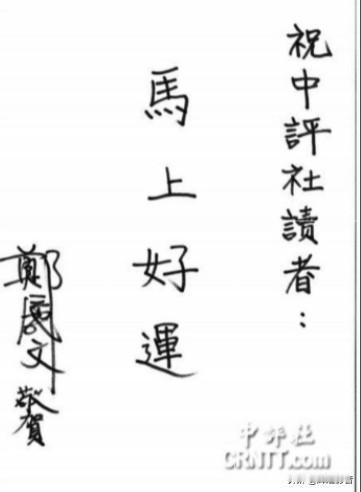 祝中評社讀者：
馬上好運
鄭麗文 敬賀
中評社
CRNTT.com